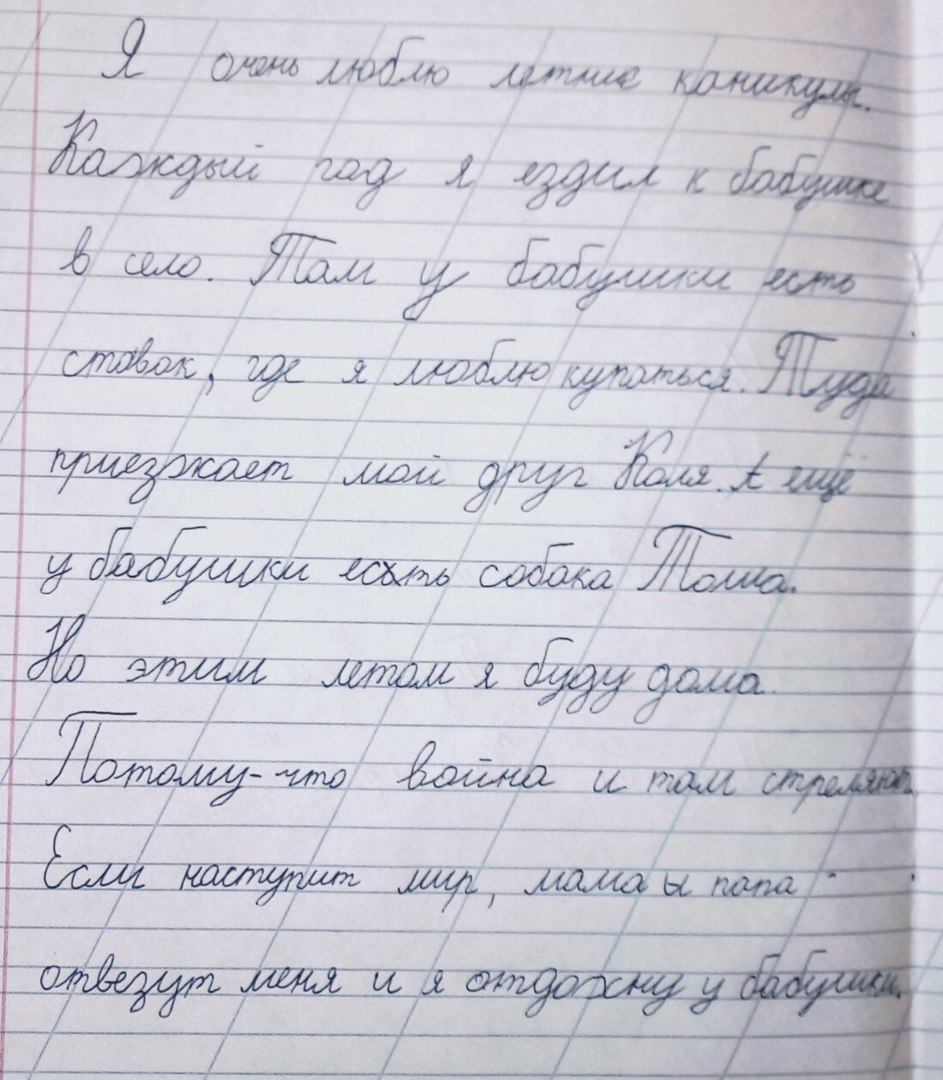 Я очень люблю летние каникулы.
Каждый год я ездил к бабушке
в село. Там у бабушки есть
ставок, где я люблю купаться. Туда
приезжает мой друг Коля. А ещё
у бабушки есть собака Тоша.
Но этим летом я буду дома.
Потому-что война и там стреляют.
Если наступит мир, мама ы папа
отвезут меня и я отдохну у бабушки.